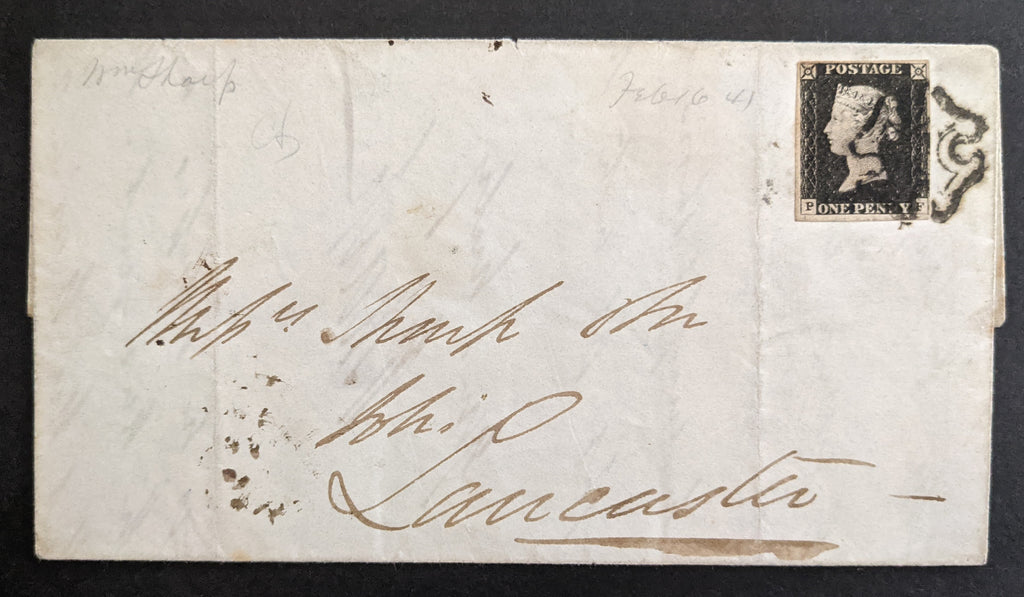 Wm Sharp
Feb 16 41
POSTAGE
P ONE PENNY F
Messrs Sharp
Lancaster